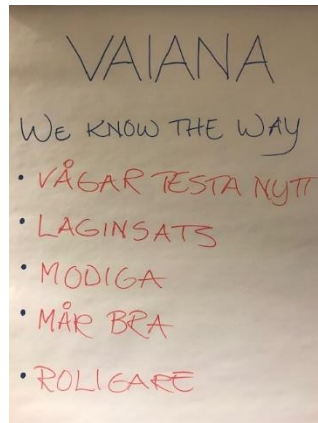 VAIANA
WE KNOW THE WAY
• VÅGAR TESTA NYTT
• LAGINSATS
• MODIGA
• MÅR BRA
• ROLIGARE